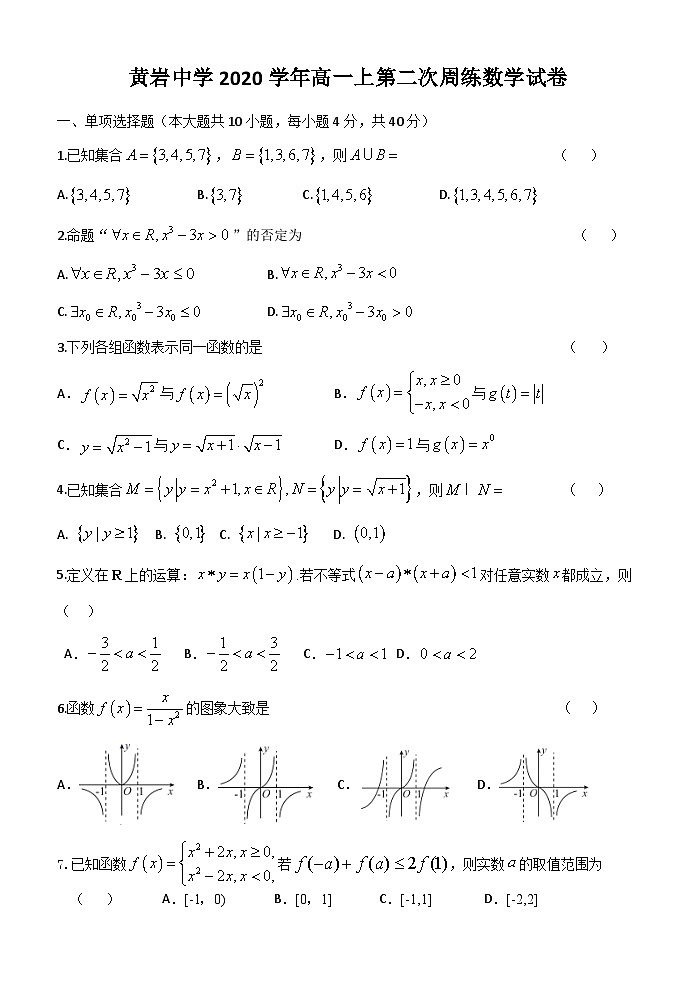 黄岩中学 2020 学年高一上第二次周练数学试卷
一、单项选择题（本大题共 10 小题，每小题 4 分，共 40 分）
1.已知集合 A={3,4,5,7}，B={1,3,6,7}，则 A∪B= （ ）
A.{3,4,5,7} B.{3,7} C.{1,4,5,6} D.{1,3,4,5,6,7}
2.命题“ ∀x∈R, x³−3x>0 ”的否定为 （ ）
A.∀x∈R, x³−3x≤0 B.∀x∈R, x³−3x<0
C.∃x₀∈R, x₀³−3x₀≤0 D.∃x₀∈R, x₀³−3x₀>0
3.下列各组函数表示同一函数的是 （ ）
A．f(x)=√(x²) 与 f(x)=(√x)² B．f(x)={x, x≥0 −x, x<0 与 g(t)=|t|
C．y=√(x²−1) 与 y=√(x+1)·√(x−1) D．f(x)=1 与 g(x)=x⁰
4.已知集合 M={y|y=x²+1, x∈R}, N={y|y=√(x+1)}，则 M I N= （ ）
A. {y|y≥1} B. {0,1} C. {x|x≥−1} D. (0,1)
5.定义在 R 上的运算：x*y=x(1−y) .若不等式 (x−a)*(x+a)<1 对任意实数 x 都成立，则
（ ）
A．−3/2<a<1/2 B．−1/2<a<3/2 C．−1<a<1 D．0<a<2
6.函数 f(x)=x/(1−x²) 的图象大致是 （ ）
A． y -1 O 1 x B． y -1 O 1 x C． y -1 O 1 x D． y -1 O 1 x
7. 已知函数 f(x)={x²+2x, x≥0, x²−2x, x<0, 若 f(−a)+f(a)≤2f(1)，则实数 a 的取值范围为
（ ） A．[-1，0) B．[0，1] C．[-1,1] D．[-2,2]